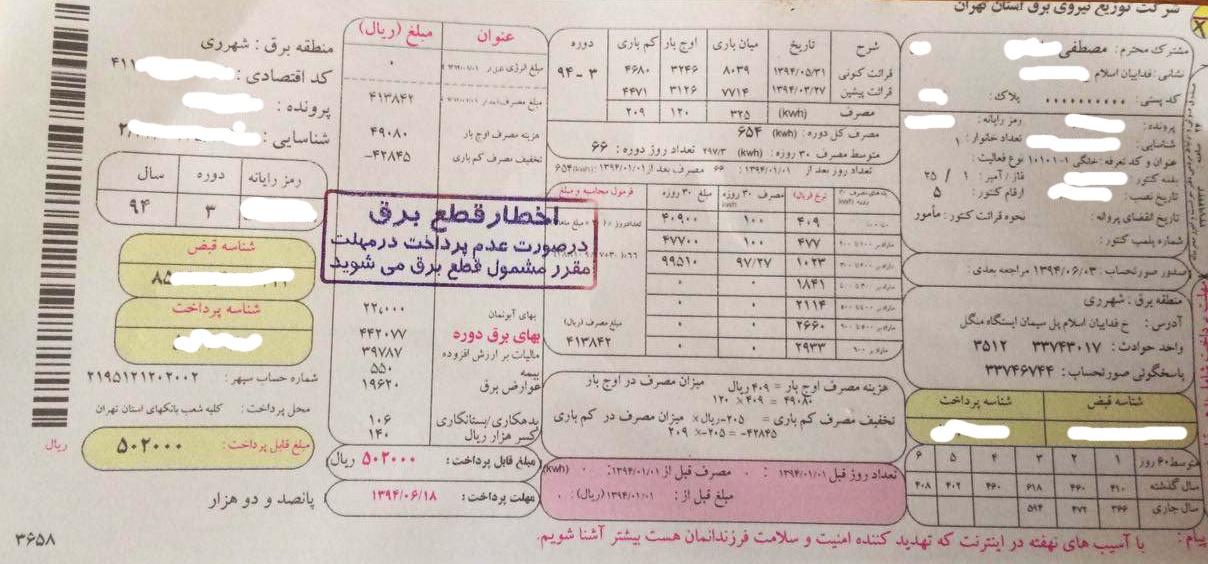 شرکت توزیع نیروی برق استان تهران
مشترک محترم: مصطفی
نشانی: فداییان اسلام
کد پستی: ۰۰۰۰۰۰۰۰۰۰ پلاک:
پرونده: رمز رایانه:
شناسایی: تعداد خانوار: ۱
عنوان و کد تعرفه: خانگی ۱-۱۰۱۰۱ نوع فعالیت:
بدنه کنتور: فاز/آمپر: ۱ / ۲۵
تاریخ نصب: ارقام کنتور: ۵
تاریخ انقضای پروانه: نحوه قرائت کنتور: مأمور
شماره پلمب کنتور:
صدور صورتحساب: ۱۳۹۴/۰۶/۰۳ مراجعه بعدی:
منطقه برق: شهرری
آدرس: خ فداییان اسلام پل سیمان ایستگاه منگل
واحد حوادث: ۳۳۷۴۳۰۱۷ ۳۵۱۲
پاسخگوئی صورتحساب: ۳۳۷۴۶۷۴۴
شناسه قبض شناسه پرداخت
متوسط ۶۰ روز ۱ ۲ ۳ ۴ ۵ ۶
سال گذشته ۴۱۰ ۴۶۰ ۶۱۸ ۴۶۰ ۴۰۲ ۴۰۸
سال جاری ۳۶۶ ۴۷۲ ۵۹۴
شرح تاریخ میان باری اوج بار کم باری دوره
قرائت کنونی ۱۳۹۴/۰۵/۳۱ ۸۰۳۹ ۳۲۴۶ ۴۶۸۰ ۹۴-۳
قرائت پیشین ۱۳۹۴/۰۳/۲۷ ۷۷۱۴ ۳۱۲۶ ۴۴۷۱
مصرف (kwh) ۳۲۵ ۱۲۰ ۲۰۹
مصرف کل دوره: (kwh) ۶۵۴
متوسط مصرف ۳۰ روزه: (kwh) ۲۹۷/۳ تعداد روز دوره: ۶۶
تعداد روز بعد از ۱۳۹۴/۰۱/۰۱: ۶۶ مصرف بعد از ۱۳۹۴/۰۱/۰۱: ۶۵۴(kwh)
نرخ (ریال) مصرف ۳۰ روزه kwh مبلغ ۳۰ روزه فرمول محاسبه و مبلغ
۴۰۹ ۱۰۰ ۴۰۹۰۰
۴۷۷ ۱۰۰ ۴۷۷۰۰
۱۰۲۳ ۹۷/۲۷ ۹۹۵۱۰
۱۸۴۱ ۰ ۰
۲۱۱۴ ۰ ۰
۲۶۶۰ ۰ ۰
۲۹۳۳ ۰ ۰
مبلغ مصرف (ریال)
۴۱۳۸۴۲
هزینه مصرف اوج بار = ۴۰۹ ریال میزان مصرف در اوج بار
۱۲۰ × ۴۰۹ = ۴۹۰۸۰
تخفیف مصرف کم باری = ۲۰۵-ریال× میزان مصرف در کم باری
۲۰۹ ×-۲۰۵ =-۴۲۸۴۵
تعداد روز قبل ۱۳۹۴/۰۱/۰۱: ۰ مصرف قبل از ۱۳۹۴/۰۱/۰۱: ۰ (kwh)
مبلغ قبل از: ۱۳۹۴/۰۱/۰۱ (ریال): ۰
عنوان مبلغ (ریال)
۰
۴۱۳۸۴۲
هزینه مصرف اوج بار ۴۹۰۸۰
تخفیف مصرف کم باری -۴۲۸۴۵
اخطار قطع برق
درصورت عدم پرداخت درمهلت
مقرر مشمول قطع برق می شوید
بهای آبونمان ۲۲,۰۰۰
بهای برق دوره ۴۴۲۰۷۷
مالیات بر ارزش افزوده ۳۹۷۸۷
بیمه ۵۵۰
عوارض برق ۱۹۶۲۰
بدهکاری/بستانکاری ۱۰۶
کسر هزار ریال ۱۴۰
مبلغ قابل پرداخت: ۵۰۲۰۰۰ ریال
مهلت پرداخت: ۱۳۹۴/۰۶/۱۸
منطقه برق: شهرری
کد اقتصادی: ۴۱۱
پرونده:
شناسایی:
رمز رایانه دوره سال
۳ ۹۴
شناسه قبض
شناسه پرداخت
شماره حساب سپهر: ۲۱۹۵۱۲۱۲۰۲۰۰۲
محل پرداخت: کلیه شعب بانکهای استان تهران
مبلغ قابل پرداخت: ۵۰۲۰۰۰ ریال
پانصد و دو هزار
پیام: با آسیب های نهفته در اینترنت که تهدید کننده امنیت و سلامت فرزندانمان هست بیشتر آشنا شویم.
۳۶۵۸